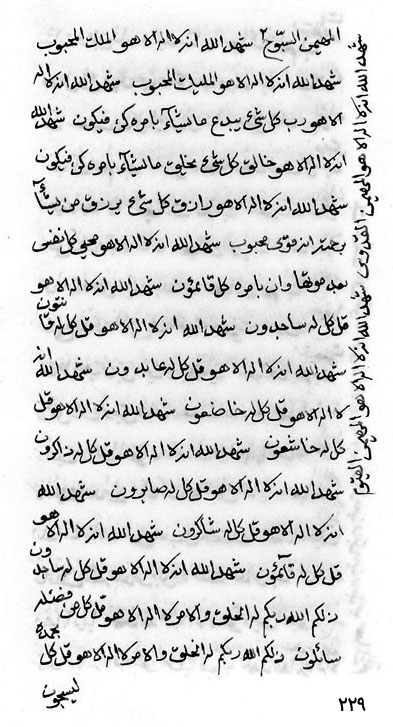 المهيمن السبّوح ٢ شهد الله انه لا اله الا هو الملك المحبوب
شهد الله انه لا اله الا هو المليك المحبوب شهد الله انه لا اله
الا هو رب كل شئ يبدع ما يشآء بامره كن فيكون شهد الله
انه لا اله الا هو خالق كل شئ يخلق ما يشآء بامره كن فيكون
شهد الله انه لا اله الا هو رازق كل شئ يرزق من يشآء
برحمته انه قوي محبوب شهد الله انه لا اله الا هو محيي كل نفس
بعد موتها وان بامره كل قائمون شهد الله انه لا اله الا هو
قل كل له ساجدون شهد الله انه لا اله الا هو قل كل له قانتون
شهد الله انه لا اله الا هو قل كل له عابدون شهد الله انه
لا اله الا هو قل كل له خاضعون شهد الله انه لا اله الا هو قل
كل له خاشعون شهد الله انه لا اله الا هو قل كل له ذاكرون
شهد الله انه لا اله الا هو قل كل له صابرون شهد الله
انه لا اله الا هو قل كل له شاكرون شهد الله انه لا اله الا هو
قل كل له قآئمون شهد الله انه لا اله الا هو قل كل له ساجدون
ذلكم الله ربكم له الخلق والامر لا اله الا هو قل كل من فضله
سائلون ذلكم الله ربكم له الخلق والامر لا اله الا هو قل كل بحمده
ليسبحون
شهد الله انه لا اله الا هو المهيمن القدوس شهد الله انه لا اله الا هو المهيمن القيوم
٢٢٩